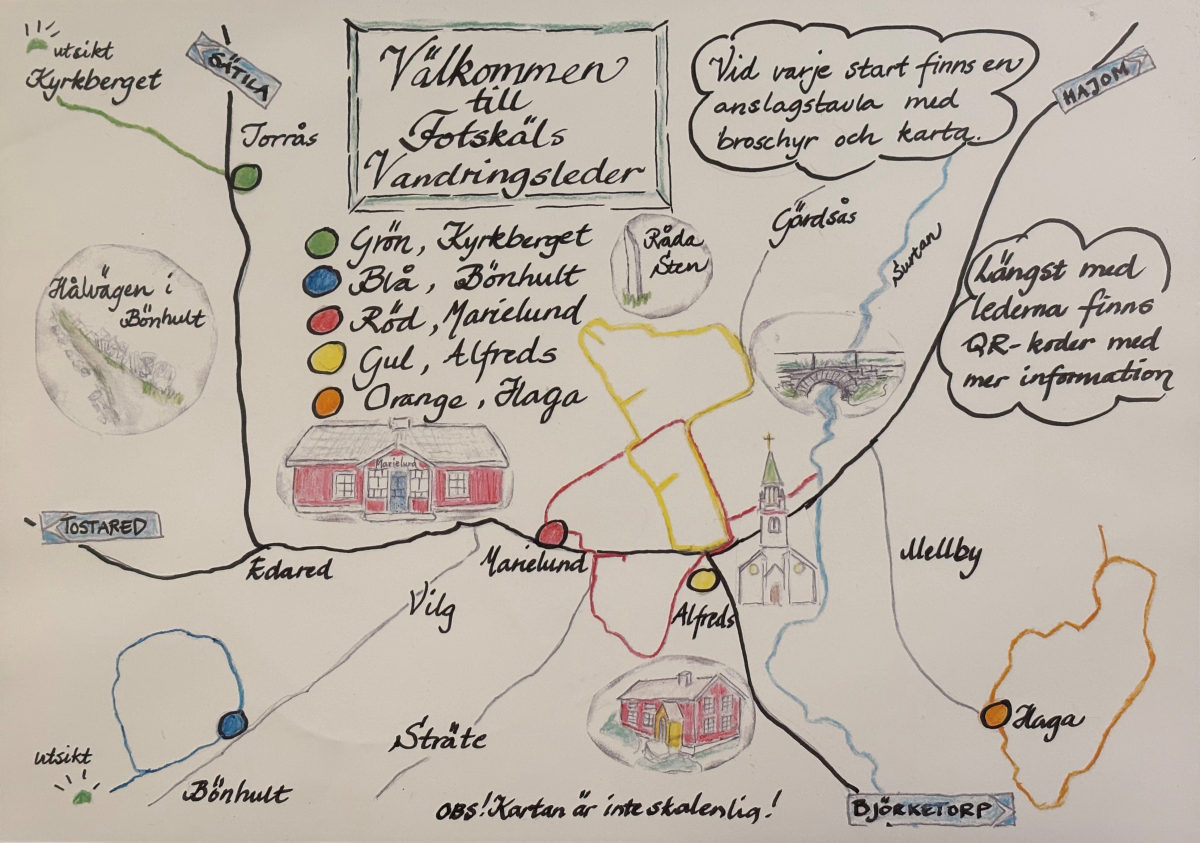 utsikt
Kyrkberget
SÄTILA
Torrås
Välkommen
till
Fotskäls
Vandringsleder
Vid varje start finns en
anslagstavla med
broschyr och karta.
HAJOM
Grön, Kyrkberget
Blå, Bönhult
Röd, Marielund
Gul, Alfreds
Orange, Haga
Råda
Sten
Gärdsås
Surtan
Längst med
lederna finns
QR-koder med
mer information
Hålvägen i
Bönhult
Marielund
TOSTARED
Edared
Marielund
Vilg
Alfreds
Mellby
Haga
Sträte
utsikt
Bönhult
OBS! Kartan är inte skalenlig!
BJÖRKETORP